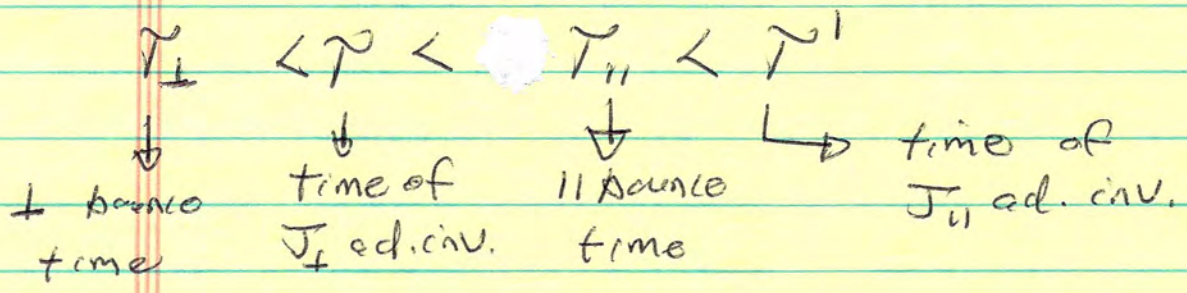 τ⊥ < τ < τ∥ < τ'
⊥ bounce time
time of J⊥ ad. inv.
∥ bounce time
time of J∥ ad. inv.